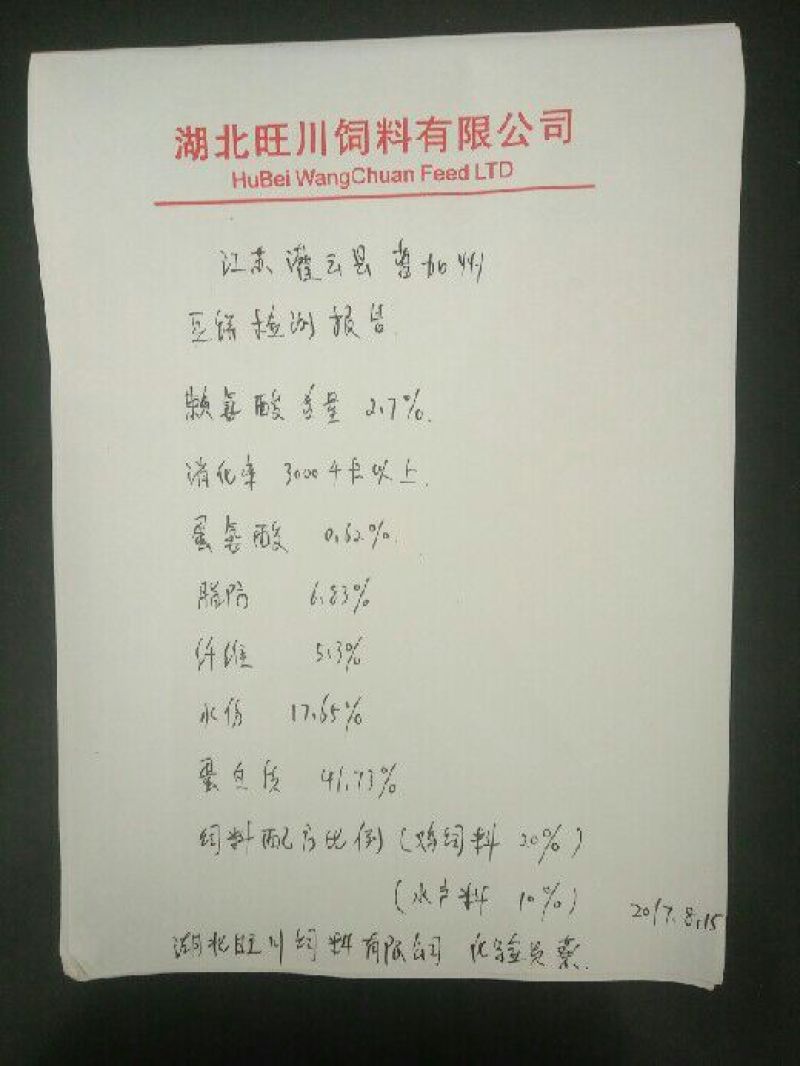 湖北旺川饲料有限公司
HuBei WangChuan Feed LTD
江苏灌云县
豆饼检测报告.
赖氨酸含量 2.7%.
消化率 3000千卡以上.
蛋氨酸 0.62%.
脂肪 6.83%
纤维 5.3%
水份 17.65%
蛋白质 41.73%
饲料配方比例 (鸡饲料 20%)
(水产料 10%)
2017.8.15
湖北旺川饲料有限公司 化验员